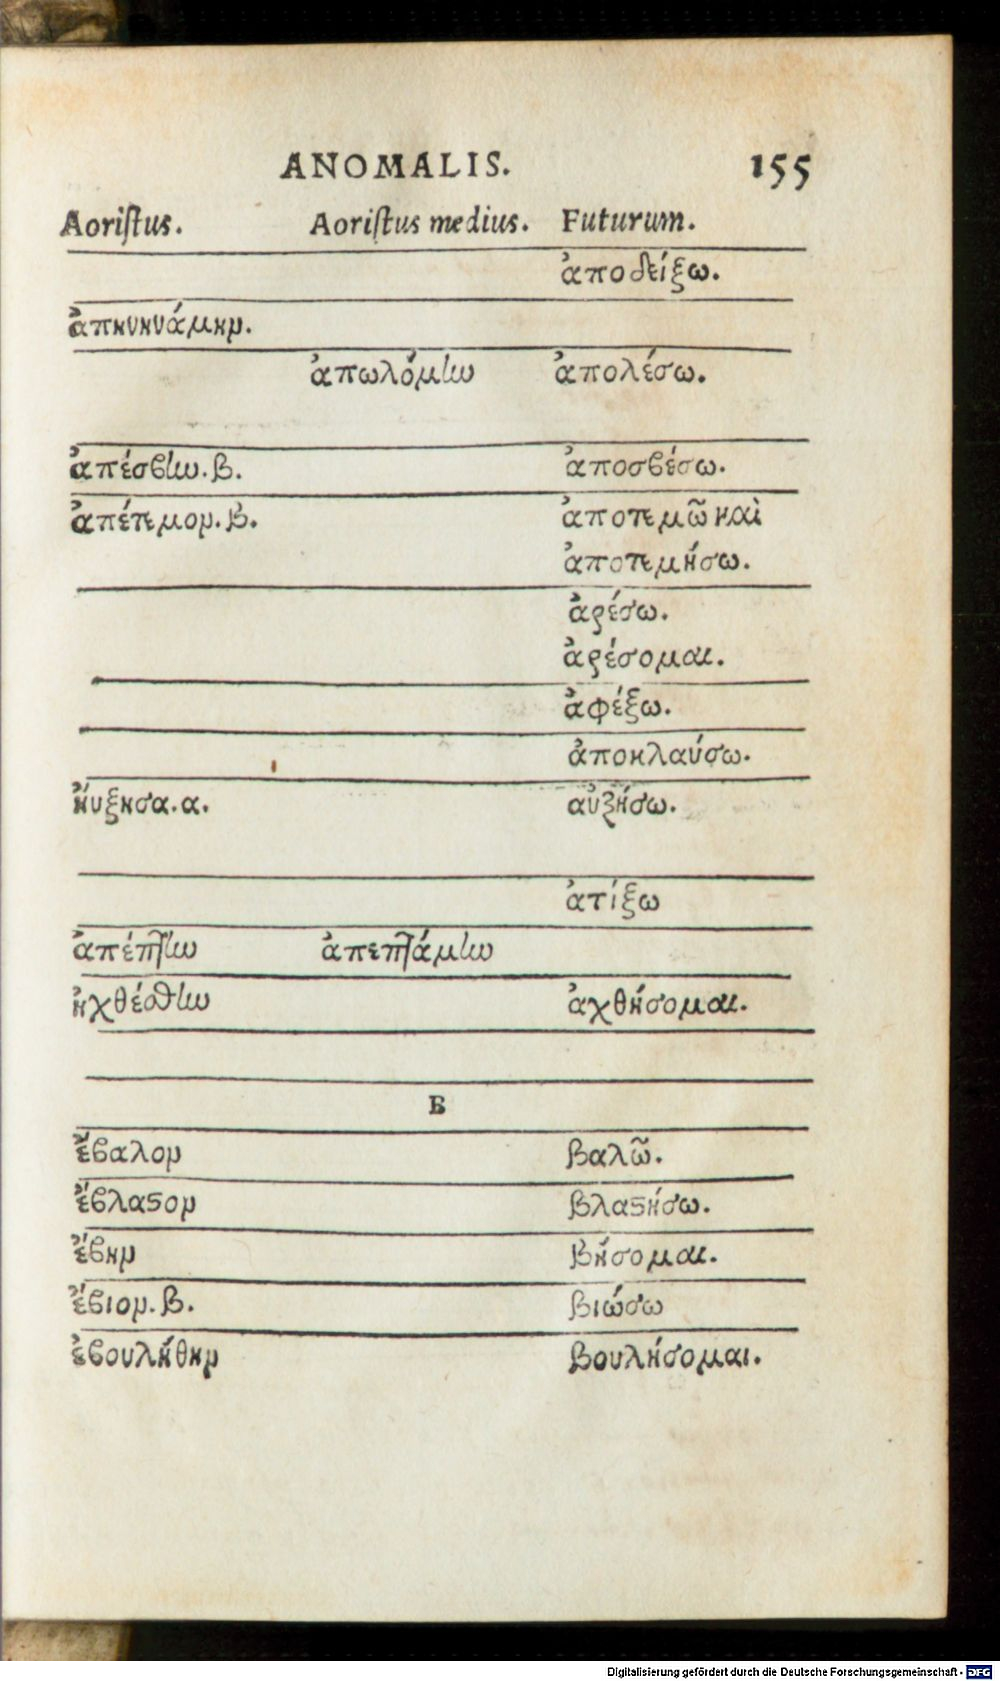 ANOMALIS. 155
Aoristus. Aoristus medius. Futurum.
ἀποδείξω.
ἀπηνηνάμην.
ἀπωλόμἰω ἀπολέσω.
ἀπέσβἰω. β. ἀποσβέσω.
ἀπέτεμον. β. ἀποτεμῶ καὶ
ἀποτεμήσω.
ἀρέσω.
ἀρέσομαι.
ἀφέξω.
ἀποκλαύσω.
ἤυξησα. α. αὐξήσω.
ἀτίξω
ἀπέπτἰω ἀπεπτάμἰω
ἠχθέσθἰω ἀχθήσομαι.
Β
ἔβαλον βαλῶ.
ἔβλαστον βλαστήσω.
ἔβην βήσομαι.
ἔβιον. β. βιώσω
ἐβουλήθην βουλήσομαι.
Digitalisierung gefördert durch die Deutsche Forschungsgemeinschaft - DFG